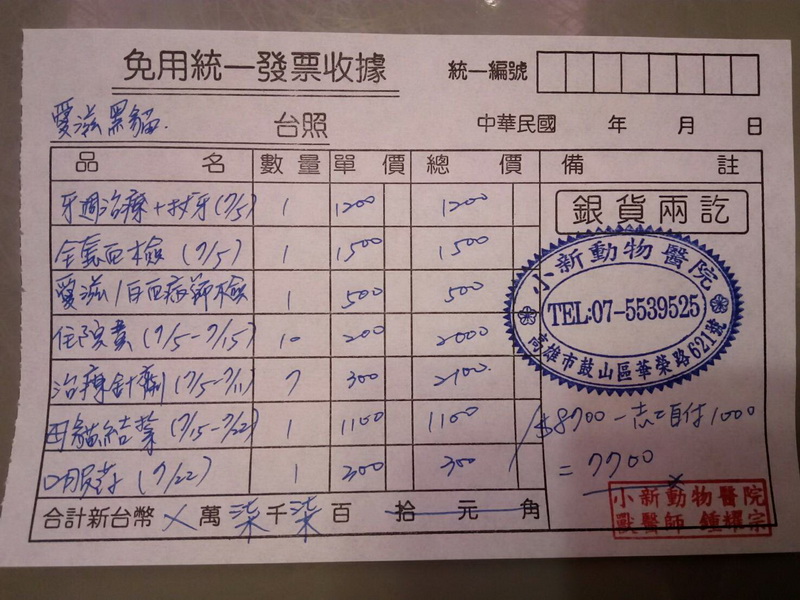 免用統一發票收據
統一編號
愛滋黑貓.
台照
中華民國 年 月 日
品名 數量 單價 總價 備註
牙週治療+拔牙(7/5) 1 1200 1200
全套血檢(7/5) 1 1500 1500
愛滋/白血病篩檢 1 500 500
住院費(7/5-7/15) 10 200 2000
治療針劑(7/5-7/11) 7 300 2100
母貓結紮(7/15-7/22) 1 1100 1100
口服藥(7/22) 1 300 300
合計新台幣 X 萬 柒 千 柒 百 拾 元 角
銀貨兩訖
小新動物醫院
TEL:07-5539525
高雄市鼓山區華榮路621號
$8700-志工自付1000
=7700
小新動物醫院
獸醫師 鍾耀宗